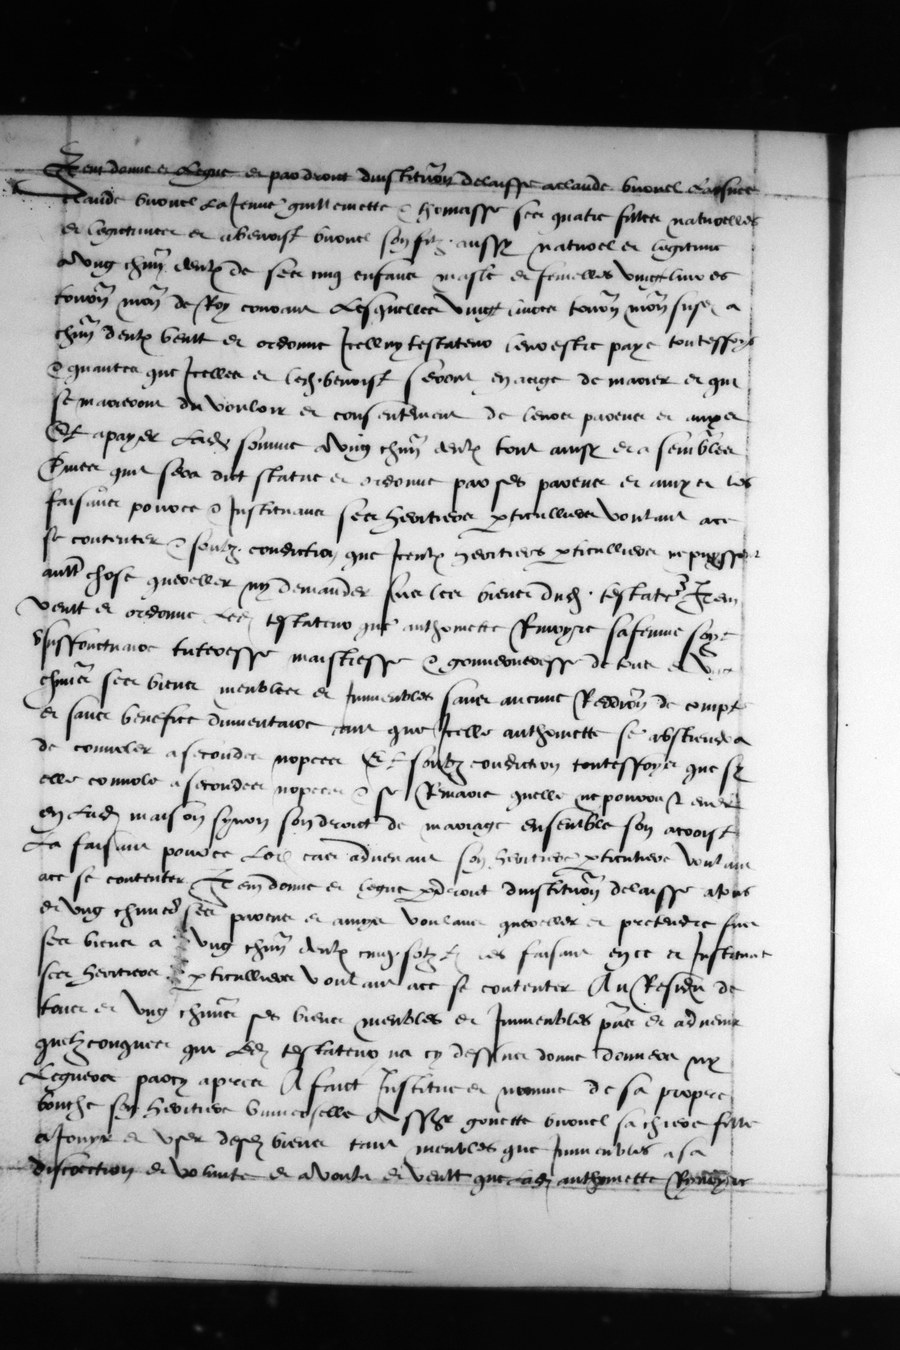 Item donne et legue et par droit dinstitutiõn delaisse a claude bronel laysnee
claude bronel la Jenne guillemette & thomasse ses quatre filles naturelles
et legitimes et a benoist bronel son filz aussy naturel et legitime
a ung chũn deulx de ses cinq enfans masle et femelles vingt livres
tournõ monñ de Roy courant Lesquelles vingt livres tournõ monñ susd a
chũn deulx veult et ordonne Icelluy testateur leur estre paye touteffoys
& quantes que Icelles et led benoist seront en aage de marier et que
se marieront du vouloir et consentement de leurs parens et amys
Et a payer lad somme a ung chũn deulx tout ainsy et a semblees
que sera dict statue et ordonne par ses parens et amys les
faisant pource & Instituant ses heritiers pticulliers voulant ace
se contenter & soubz condiction que Iceulx heritiers pticulliers ne puyssent
aultr chose quereller ny demander sur les biens dud testatr Item
veult et ordonne led testateur que anthoinette sa femme soye
tuteresse maistresse & gouverneresse de tous et ung
chũn ses biens meubles et Immeubles sans aucune Reddiõn de compte
et sans benefice dinventaire tant que Icelle anthoinette se abstiendra
de convoler a secondes nopces Et soubz condiction touteffoys que sy
elle convole a secondes nopces & se Remarie quelle ne pourra Riens
en lad maison synon son droict de mariage ensemble son
La faisant pource aud cas advenant son heritiere pticuliere voulant
ace se contenter Item donne et legue p droit dinstitutiõn delaisse a tous
et ung chũns ses parens et amys voulant quereller et pretendre sur
ses biens a ung chũn deulx cinq solz tz les faisant en ce et Instituant
ses heritiers pticulliers voulant ace se contenter Au Residu de
tous et ung chũns ses biens meubles et Immeubles pñs et advenir
quelzconques que led testateur na cy dessus donne donnera ny
leguera par cy apres A faict Institue et nomme de sa propre
bouche son heritiere universelle gonette bronel sa chiere fille
a Jouyr et user desd biens tant meubles que Immeubles a sa
discrection et volunte et a voulu et veult que lad anthoinette